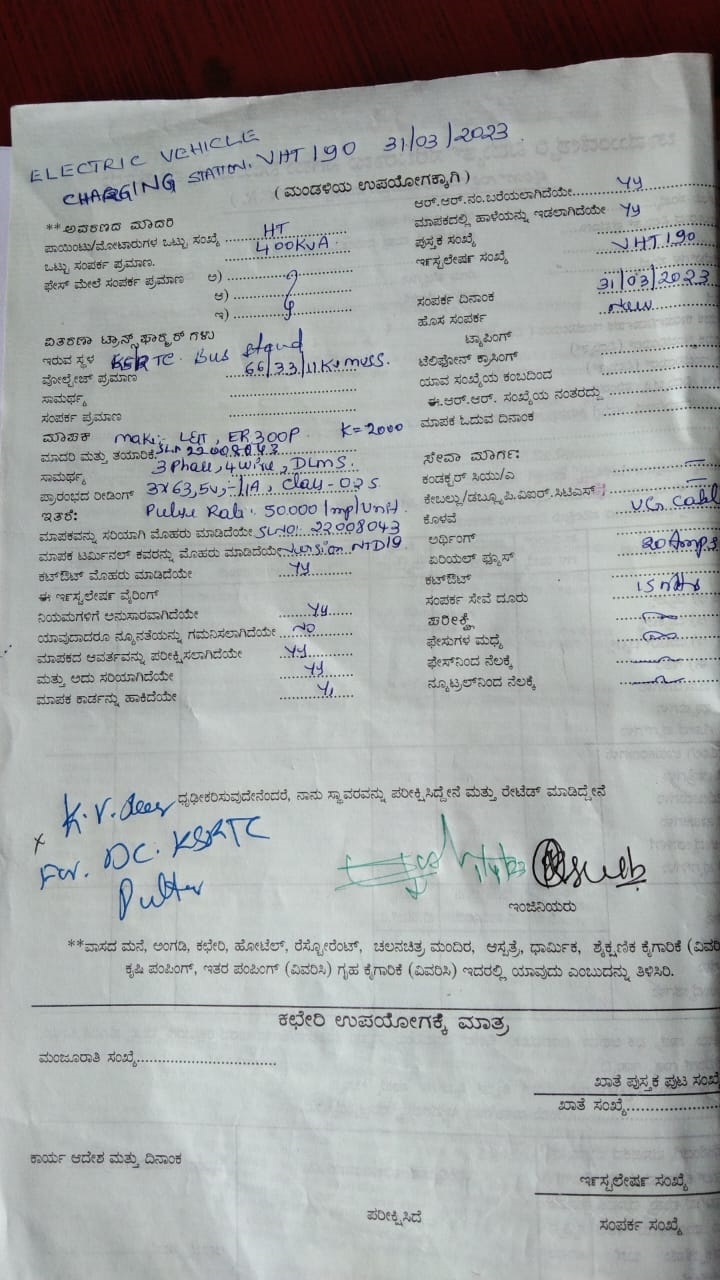 ELECTRIC VEHICLE
CHARGING STATION. VHT 190 31/03/2023
( ಮಂಡಳಿಯ ಉಪಯೋಗಕ್ಕಾಗಿ )
**ಆವರಣದ ಮಾದರಿ
ಪಾಯಿಂಟು/ಮೋಟಾರುಗಳ ಒಟ್ಟು ಸಂಖ್ಯೆ HT
ಒಟ್ಟು ಸಂಪರ್ಕ ಪ್ರಮಾಣ. 400KVA
ಫೇಸ್ ಮೇಲೆ ಸಂಪರ್ಕ ಪ್ರಮಾಣ ಅ)
ಆ)
ಇ)
ವಿತರಣಾ ಟ್ರಾನ್ಸ್‌ಫಾರ್ಮರ್ ಗಳು
ಇರುವ ಸ್ಥಳ KSRTC. Bus Stand
ವೋಲ್ಟೇಜ್ ಪ್ರಮಾಣ 66/33/11KV muss.
ಸಾಮರ್ಥ್ಯ
ಸಂಪರ್ಕ ಪ್ರಮಾಣ
ಮಾಪಕ make:- L&T, ER300P. K=2000
ಮಾದರಿ ಮತ್ತು ತಯಾರಿಕೆ: SLNo 22008043
ಸಾಮರ್ಥ್ಯ 3 Phase, 4 wire, DLMS.
ಪ್ರಾರಂಭದ ರೀಡಿಂಗ್ 3x63.5V, -/1A, Class - 0.2S
ಇತರೆ: Pulse Rate: 50000 Imp/Unit
ಮಾಪಕವನ್ನು ಸರಿಯಾಗಿ ಮೊಹರು ಮಾಡಿದೆಯೇ SLNO: 22008043
ಮಾಪಕ ಟರ್ಮಿನಲ್ ಕವರನ್ನು ಮೊಹರು ಮಾಡಿದೆಯೇ Version NTD19
ಕಟ್‌ಔಟ್ ಮೊಹರು ಮಾಡಿದೆಯೇ yy
ಈ ಇನ್‌ಸ್ಟಲೇಷನ್ ವೈರಿಂಗ್
ನಿಯಮಗಳಿಗೆ ಅನುಸಾರವಾಗಿದೆಯೇ yy
ಯಾವುದಾದರೂ ನ್ಯೂನತೆಯನ್ನು ಗಮನಿಸಲಾಗಿದೆಯೇ NO
ಮಾಪಕದ ಆವರ್ತವನ್ನು ಪರೀಕ್ಷಿಸಲಾಗಿದೆಯೇ yy
ಮತ್ತು ಅದು ಸರಿಯಾಗಿದೆಯೇ yy
ಮಾಪಕ ಕಾರ್ಡನ್ನು ಹಾಕಿದೆಯೇ
ಆರ್.ಆರ್.ನಂ.ಬರೆಯಲಾಗಿದೆಯೇ yy
ಮಾಪಕದಲ್ಲಿ ಹಾಳೆಯನ್ನು ಇಡಲಾಗಿದೆಯೇ yy
ಪುಸ್ತಕ ಸಂಖ್ಯೆ
ಇನ್‌ಸ್ಟಲೇಷನ್ ಸಂಖ್ಯೆ VHT190
ಸಂಪರ್ಕ ದಿನಾಂಕ 31/03/2023
ಹೊಸ ಸಂಪರ್ಕ new
ಟ್ಯಾಪಿಂಗ್
ಟೆಲಿಫೋನ್ ಕ್ರಾಸಿಂಗ್
ಯಾವ ಸಂಖ್ಯೆಯ ಕಂಬದಿಂದ
ಈ.ಆರ್.ಆರ್. ಸಂಖ್ಯೆಯ ನಂತರದ್ದು
ಮಾಪಕ ಓದುವ ದಿನಾಂಕ
ಸೇವಾ ಮಾರ್ಗ:
ಕಂಡಕ್ಟರ್ ಸಿಯು/ಎ
ಕೇಬಲ್ಲು/ಡಬ್ಲೂಪಿ.ವಿಐಆರ್.ಸಿಟಿಎಸ್
ಕೊಳವೆ U.G. Cabl
ಅರ್ಥಿಂಗ್
ಏರಿಯಲ್ ಫ್ಯೂಸ್ 20 Amps
ಕಟ್‌ಔಟ್
ಸಂಪರ್ಕ ಸೇವೆ ದೂರು 15 mtr
ಪರೀಕ್ಷೆ
ಫೇಸುಗಳ ಮಧ್ಯೆ
ಫೇಸ್‌ನಿಂದ ನೆಲಕ್ಕೆ
ನ್ಯೂಟ್ರಲ್‌ನಿಂದ ನೆಲಕ್ಕೆ
ಧೃಢೀಕರಿಸುವುದೇನೆಂದರೆ, ನಾನು ಸ್ಥಾವರವನ್ನು ಪರೀಕ್ಷಿಸಿದ್ದೇನೆ ಮತ್ತು ರೇಟೆಡ್ ಮಾಡಿದ್ದೇನೆ
For. DC. KSRTC
Puttur
1/4/23
ಇಂಜಿನಿಯರು
**ವಾಸದ ಮನೆ, ಅಂಗಡಿ, ಕಛೇರಿ, ಹೋಟೆಲ್, ರೆಸ್ಟೋರೆಂಟ್, ಚಲನಚಿತ್ರ ಮಂದಿರ, ಆಸ್ಪತ್ರೆ, ಧಾರ್ಮಿಕ, ಶೈಕ್ಷಣಿಕ ಕೈಗಾರಿಕೆ (ವಿವರಿ
ಕೃಷಿ ಪಂಪಿಂಗ್, ಇತರ ಪಂಪಿಂಗ್ (ವಿವರಿಸಿ) ಗೃಹ ಕೈಗಾರಿಕೆ (ವಿವರಿಸಿ) ಇದರಲ್ಲಿ ಯಾವುದು ಎಂಬುದನ್ನು ತಿಳಿಸಿರಿ.
ಕಛೇರಿ ಉಪಯೋಗಕ್ಕೆ ಮಾತ್ರ
ಮಂಜೂರಾತಿ ಸಂಖ್ಯೆ
ಖಾತೆ ಪುಸ್ತಕ ಪುಟ ಸಂಖ್ಯೆ
ಖಾತೆ ಸಂಖ್ಯೆ
ಕಾರ್ಯ ಆದೇಶ ಮತ್ತು ದಿನಾಂಕ
ಇನ್‌ಸ್ಟಲೇಷನ್ ಸಂಖ್ಯೆ
ಪರೀಕ್ಷಿಸಿದೆ
ಸಂಪರ್ಕ ಸಂಖ್ಯೆ